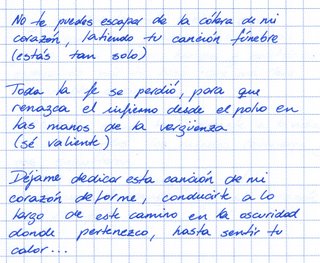 No te puedes escapar de la cólera de mi
corazón, latiendo tu canción fúnebre
(estás tan solo)
Toda la fe se perdió, para que
renazca el infierno desde el polvo en
las manos de la vergüenza
(sé valiente)
Déjame dedicar esta canción de mi
corazón deforme, conducirte a lo
largo de este camino en la oscuridad
donde pertenezco, hasta sentir tu
calor...